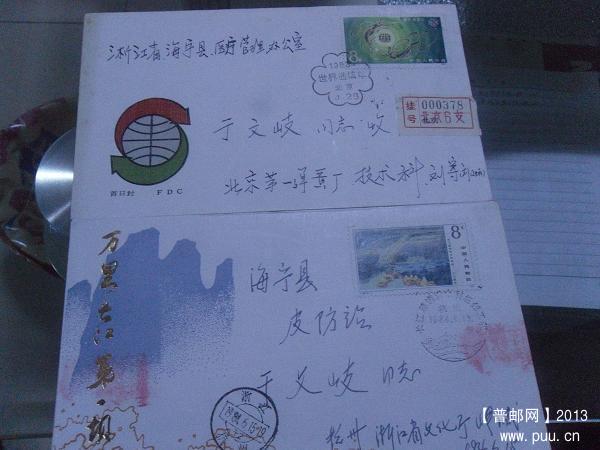 浙江省海宁县医疗管理办公室
8
1983
世界通信年
北京
挂号 000378
北京 6支
于文岐 同志 收
首日封 FDC
北京第一弹簧厂 技术科
万里长江第一坝
8
海宁县
皮防站
于文岐 同志
浙
1984.6.15.19
杭州 浙江省文化厅
【普邮网】2013
www.puu.cn